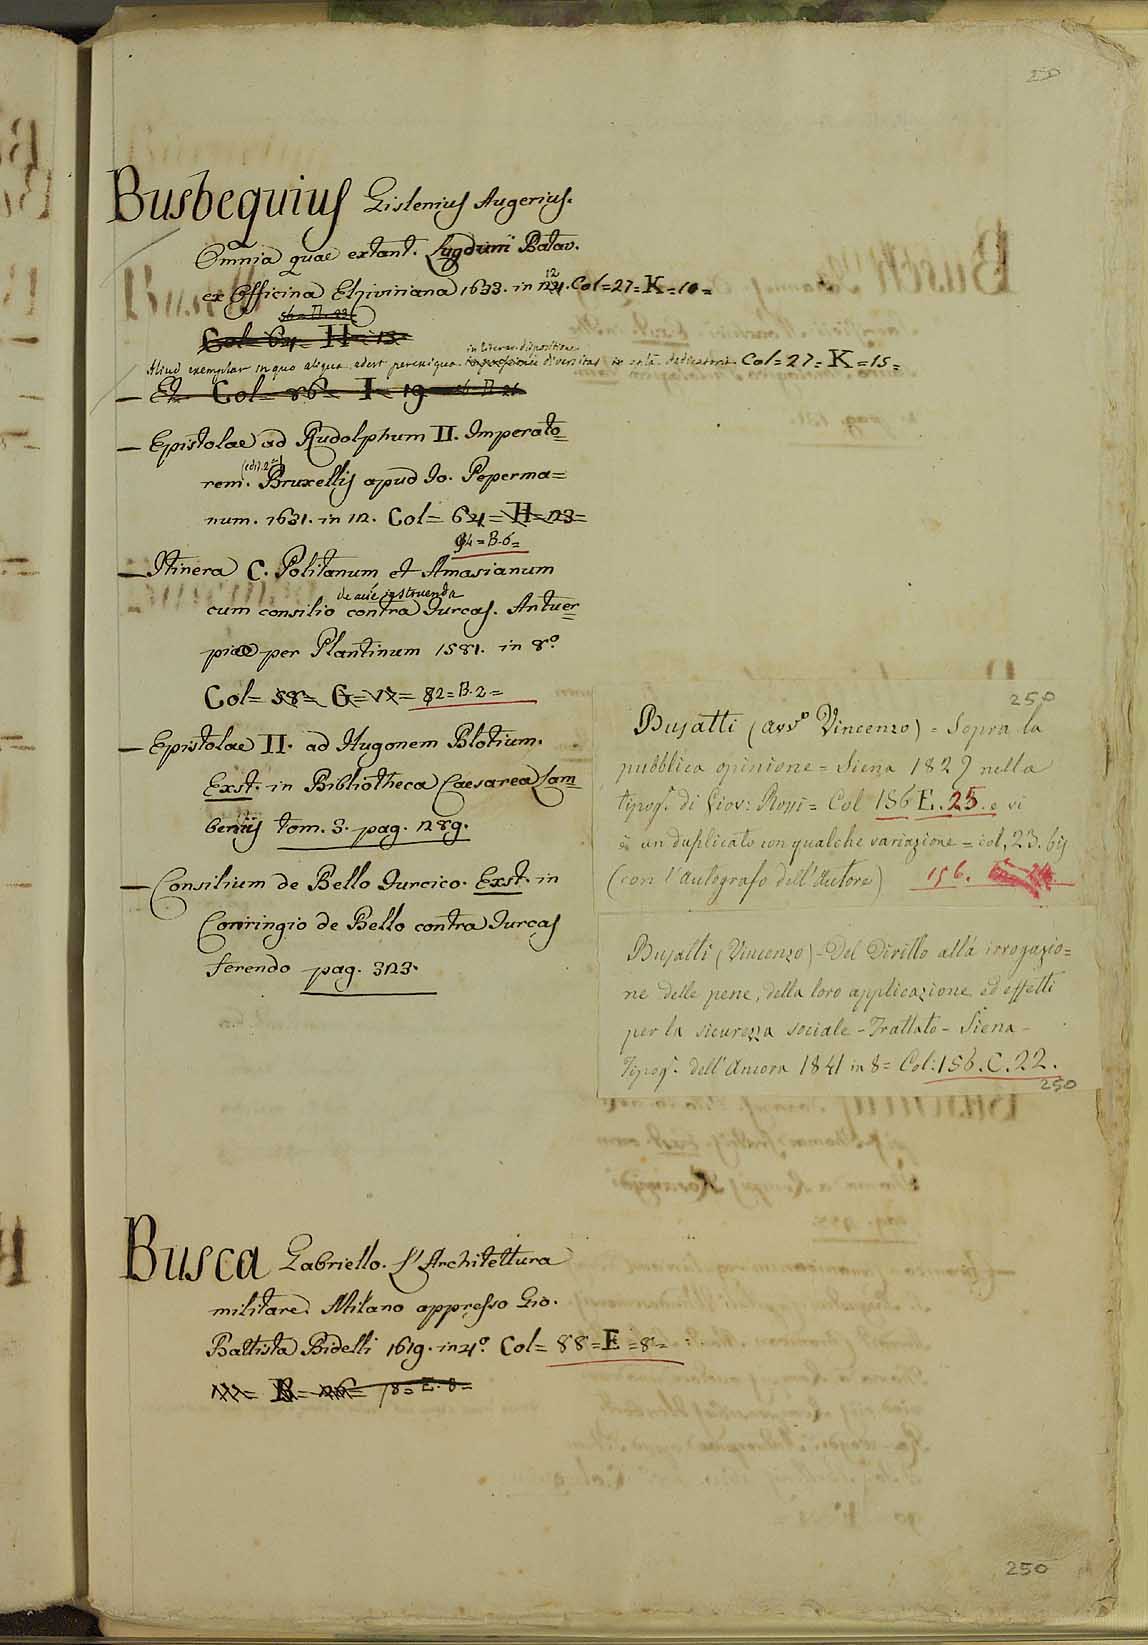 Busbequius Gislenius Augerius.
Omnia quae extant. Lugduni Batav.
ex Officina Elziviriana 1633. in 12. Col=27=K=10=
56=D.22
Col= 64= H=13=
in literar. dispositione
Aliud exemplar in quo aliqua adest perexigua diversitas in dedicatoria Col=27=K=15=
— Et. Col= 86= I= 19
— Epistolae ad Rudolphum II. Imperato=
(edit. 2ª)
rem. Bruxellis apud Io. Peperma=
num. 1631. in 12. Col= 64= H=123=
94=B.6=
— Itinera C. Politanum et Amasianum
de acie instruenda
cum consilio contra Turcas. Antuer
piae per Plantinum 1581. in 8.°
Col= 58= G=17= 82=B.2=
— Epistolae II. ad Hugonem Blotium.
Exst. in Bibliotheca Caesarea Lam
becij tom. 3. pag. 1289.
— Consilium de Bello Turcico. Exst. in
Conringio de Bello contra Turcas
ferendo pag. 323.
250
Busatti (avv° Vincenzo) = Sopra la
pubblica opinione = Siena 1827 nella
tipog. di Giov: Rossi = Col 156 E.25. e vi
è un duplicato con qualche variazione = col, 23. bis
(con l'autografo dell'Autore) 156.
Busatti (Vincenzo) - Del Diritto alla irrogazio=
ne delle pene, della loro applicazione ed effetti
per la sicurezza sociale - Trattato - Siena -
Tipog. dell'Ancora 1841 in 8= Col: 156.C.22.
250
Busca Gabriello. L'Architettura
militare. Milano appresso Gio.
Battista Bidelli 1619. in 4.° Col= 88=E=8=
B= 18=E.8=
250